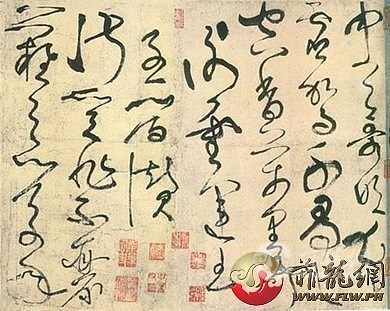 中天哥吹分
虛駕千尋上
空香萬里聞
謝靈運王
子晉讚
淑質非不麗
難以之百年
菲龍網
WWW.FLW.PH